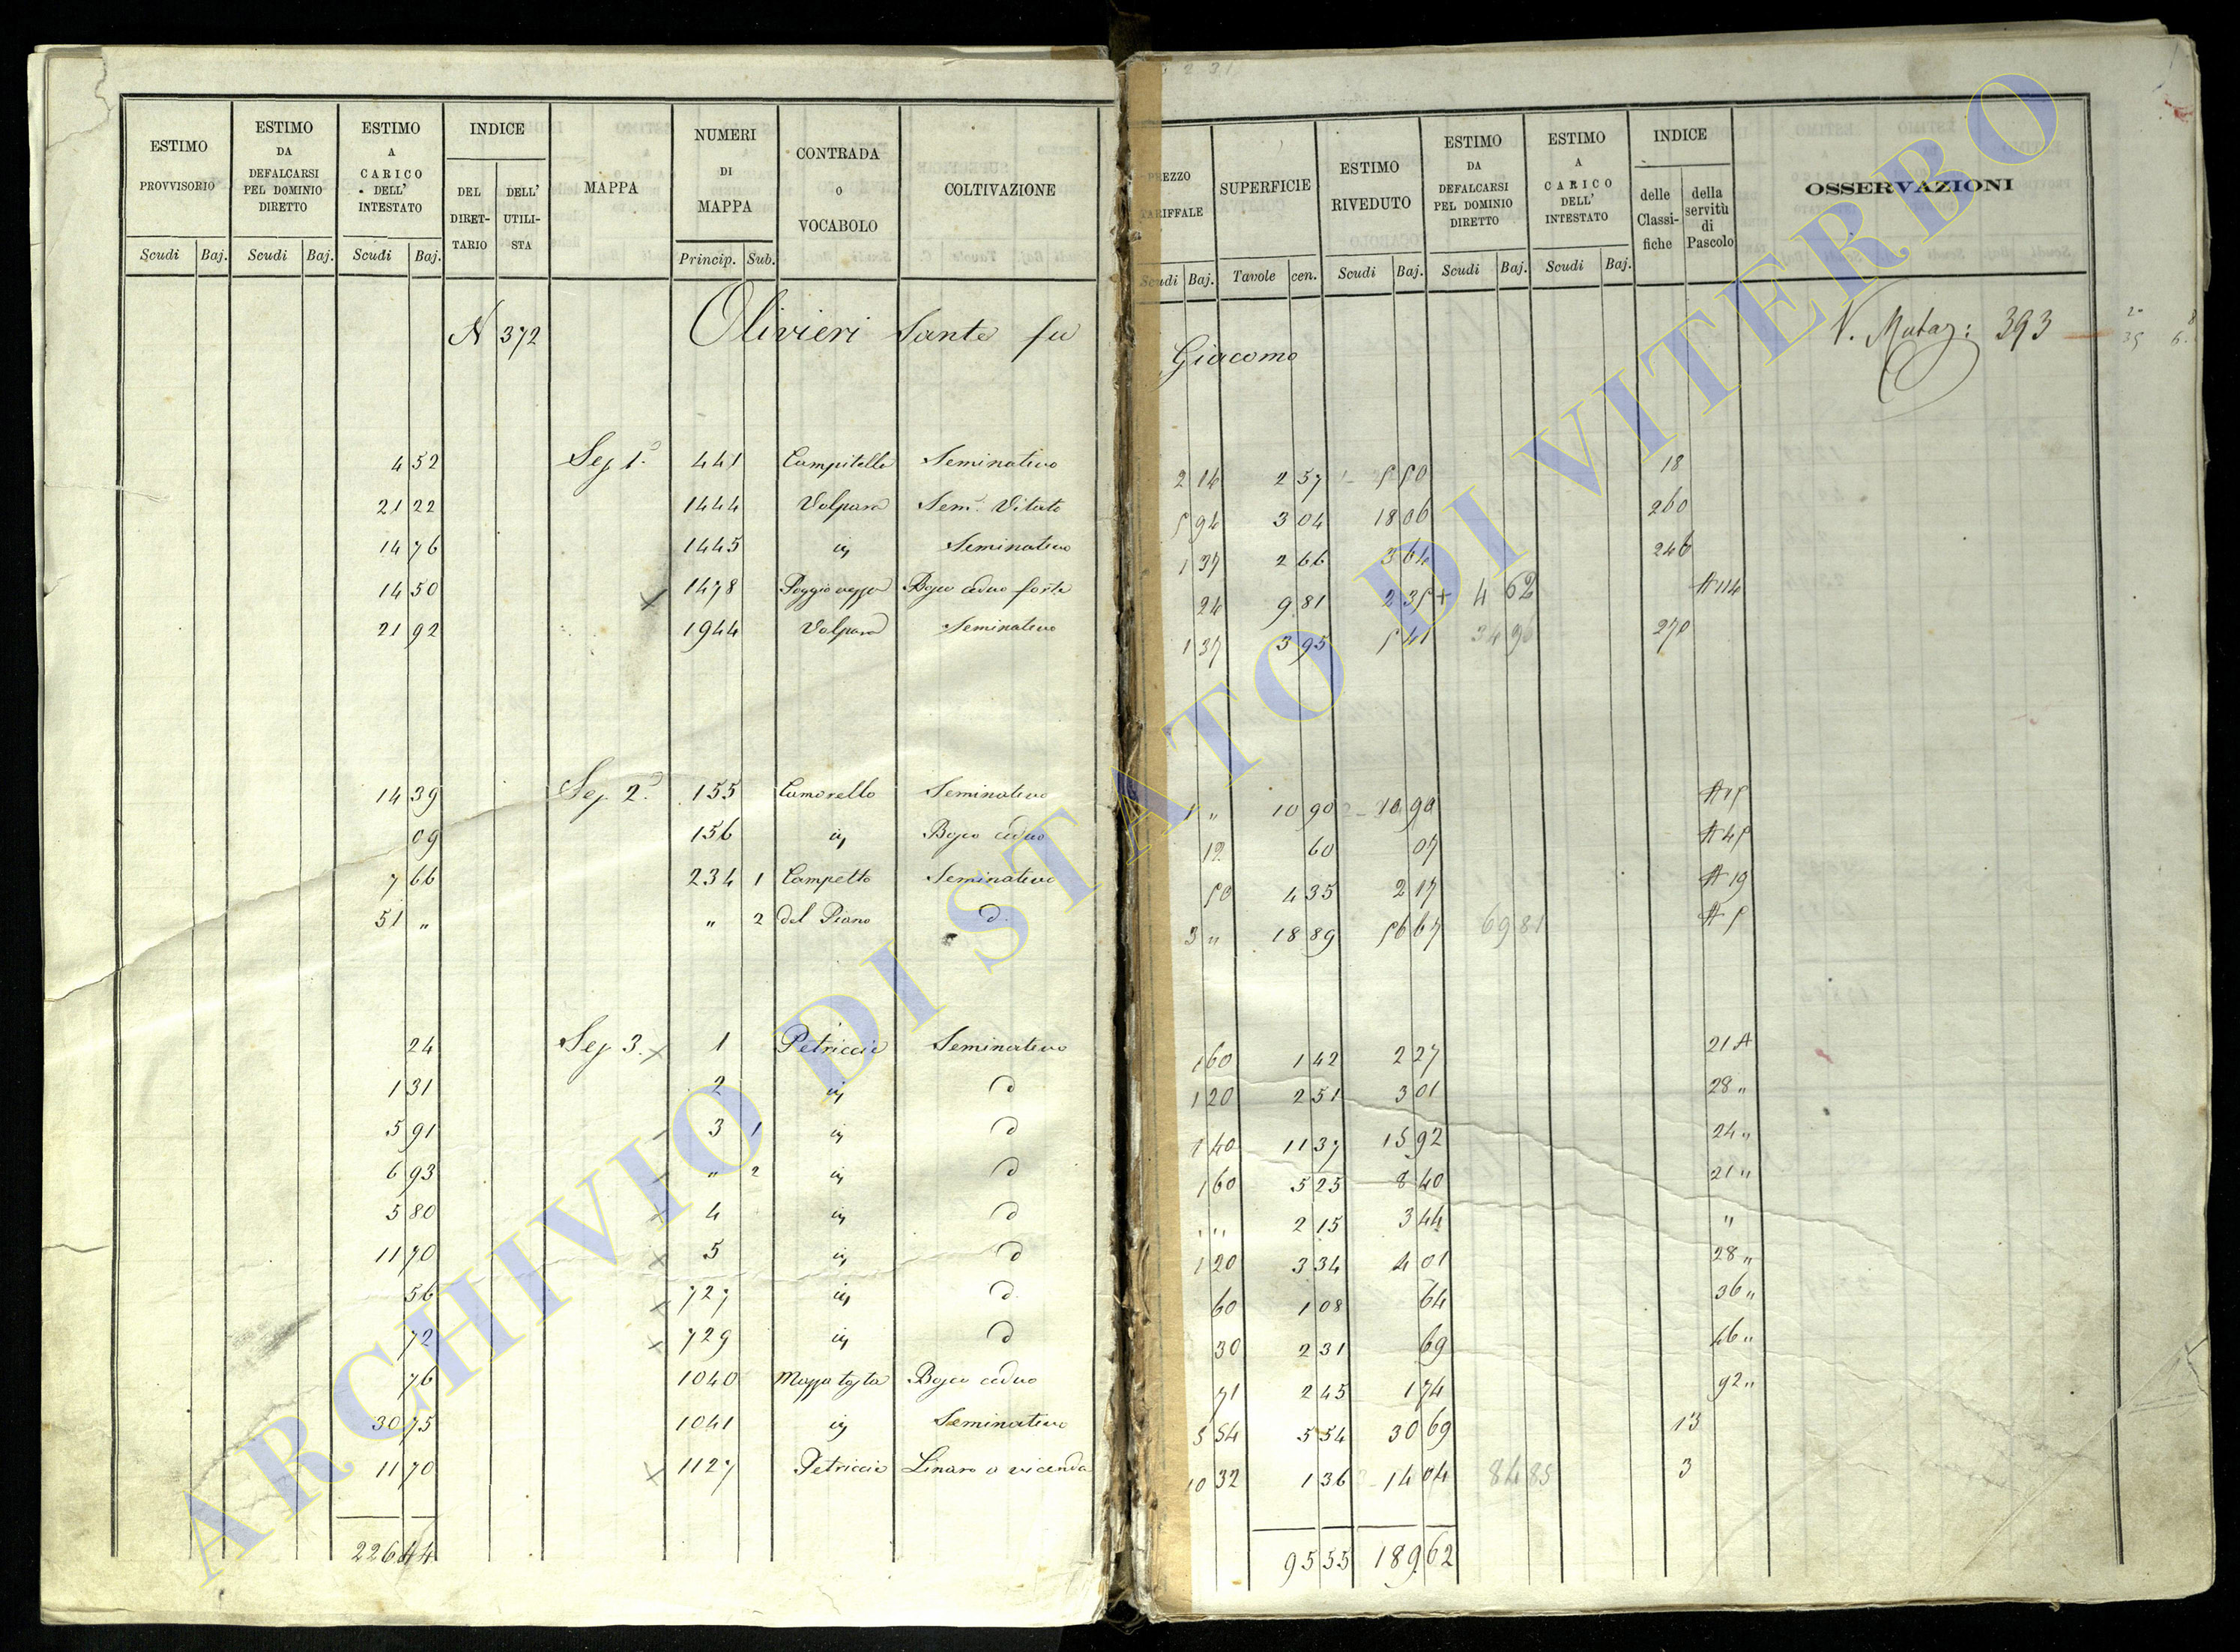 ESTIMO PROVVISORIO Scudi Baj.
ESTIMO DA DEFALCARSI PEL DOMINIO DIRETTO Scudi Baj.
ESTIMO A CARICO DELL' INTESTATO Scudi Baj.
INDICE DEL DIRETTARIO DELL' UTILISTA
MAPPA
NUMERI DI MAPPA Princip. Sub.
CONTRADA O VOCABOLO
COLTIVAZIONE
PREZZO TARIFFALE Scudi Baj.
SUPERFICIE Tavole cen.
ESTIMO RIVEDUTO Scudi Baj.
ESTIMO DA DEFALCARSI PEL DOMINIO DIRETTO Scudi Baj.
ESTIMO A CARICO DELL' INTESTATO Scudi Baj.
INDICE delle Classifiche della servitù di Pascolo
OSSERVAZIONI
N 372 Olivieri Sante fu Giacomo V. Mutaz: 393
4 52 Sez 1ª 441 Campitelle Seminativo 2 14 2 57 5 50 18
21 22 1444 Valpara Sem. Vitato 5 94 3 04 18 06 260
14 76 1445 id Seminativo 1 37 2 66 3 64 246
14 50 1478 Bosco ceduo forte 24 9 81 2 35 4 62 A 114
21 92 1944 Valpara Seminativo 1 37 3 95 5 41 34 96 270
14 39 Sez. 2ª 155 Camorello Seminativo 1 " 10 90 10 90 A 15
09 156 id Bosco ceduo 12 60 07 A 45
7 66 234 1 Campetto Seminativo 50 4 35 2 17 A 19
51 " " 2 del Piano d. 3 " 18 89 56 67 69 81 A 5
24 Sez 3. 1 Petriccio Seminativo 1 60 1 42 2 27 21 A
1 31 2 id d 1 20 2 51 3 01 28 "
5 91 3 1 id d 1 40 11 37 15 92 24 "
6 93 " 2 id d 1 60 5 25 8 40 21 "
5 80 4 id d " " 2 15 3 44 "
11 70 5 id d 1 20 3 34 4 01 28 "
56 727 id d 60 1 08 64 36 "
72 729 id d 30 2 31 69 46 "
76 1040 Bosco ceduo 71 2 45 1 74 92 "
30 75 1041 id Seminativo 5 54 5 54 30 69 13
11 70 1127 Petriccio Linaro a vicenda 10 32 1 36 14 04 84 85 3
226 44 95 55 189 62
ARCHIVIO DI STATO DI VITERBO